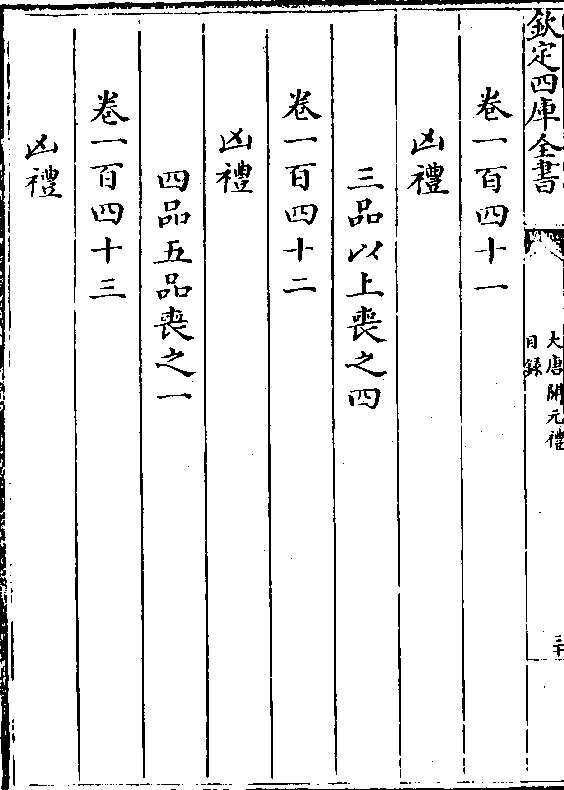 欽定四庫全書
大唐開元禮
目録
卷一百四十一
凶禮
三品以上喪之四
卷一百四十二
凶禮
四品五品喪之一
卷一百四十三
凶禮